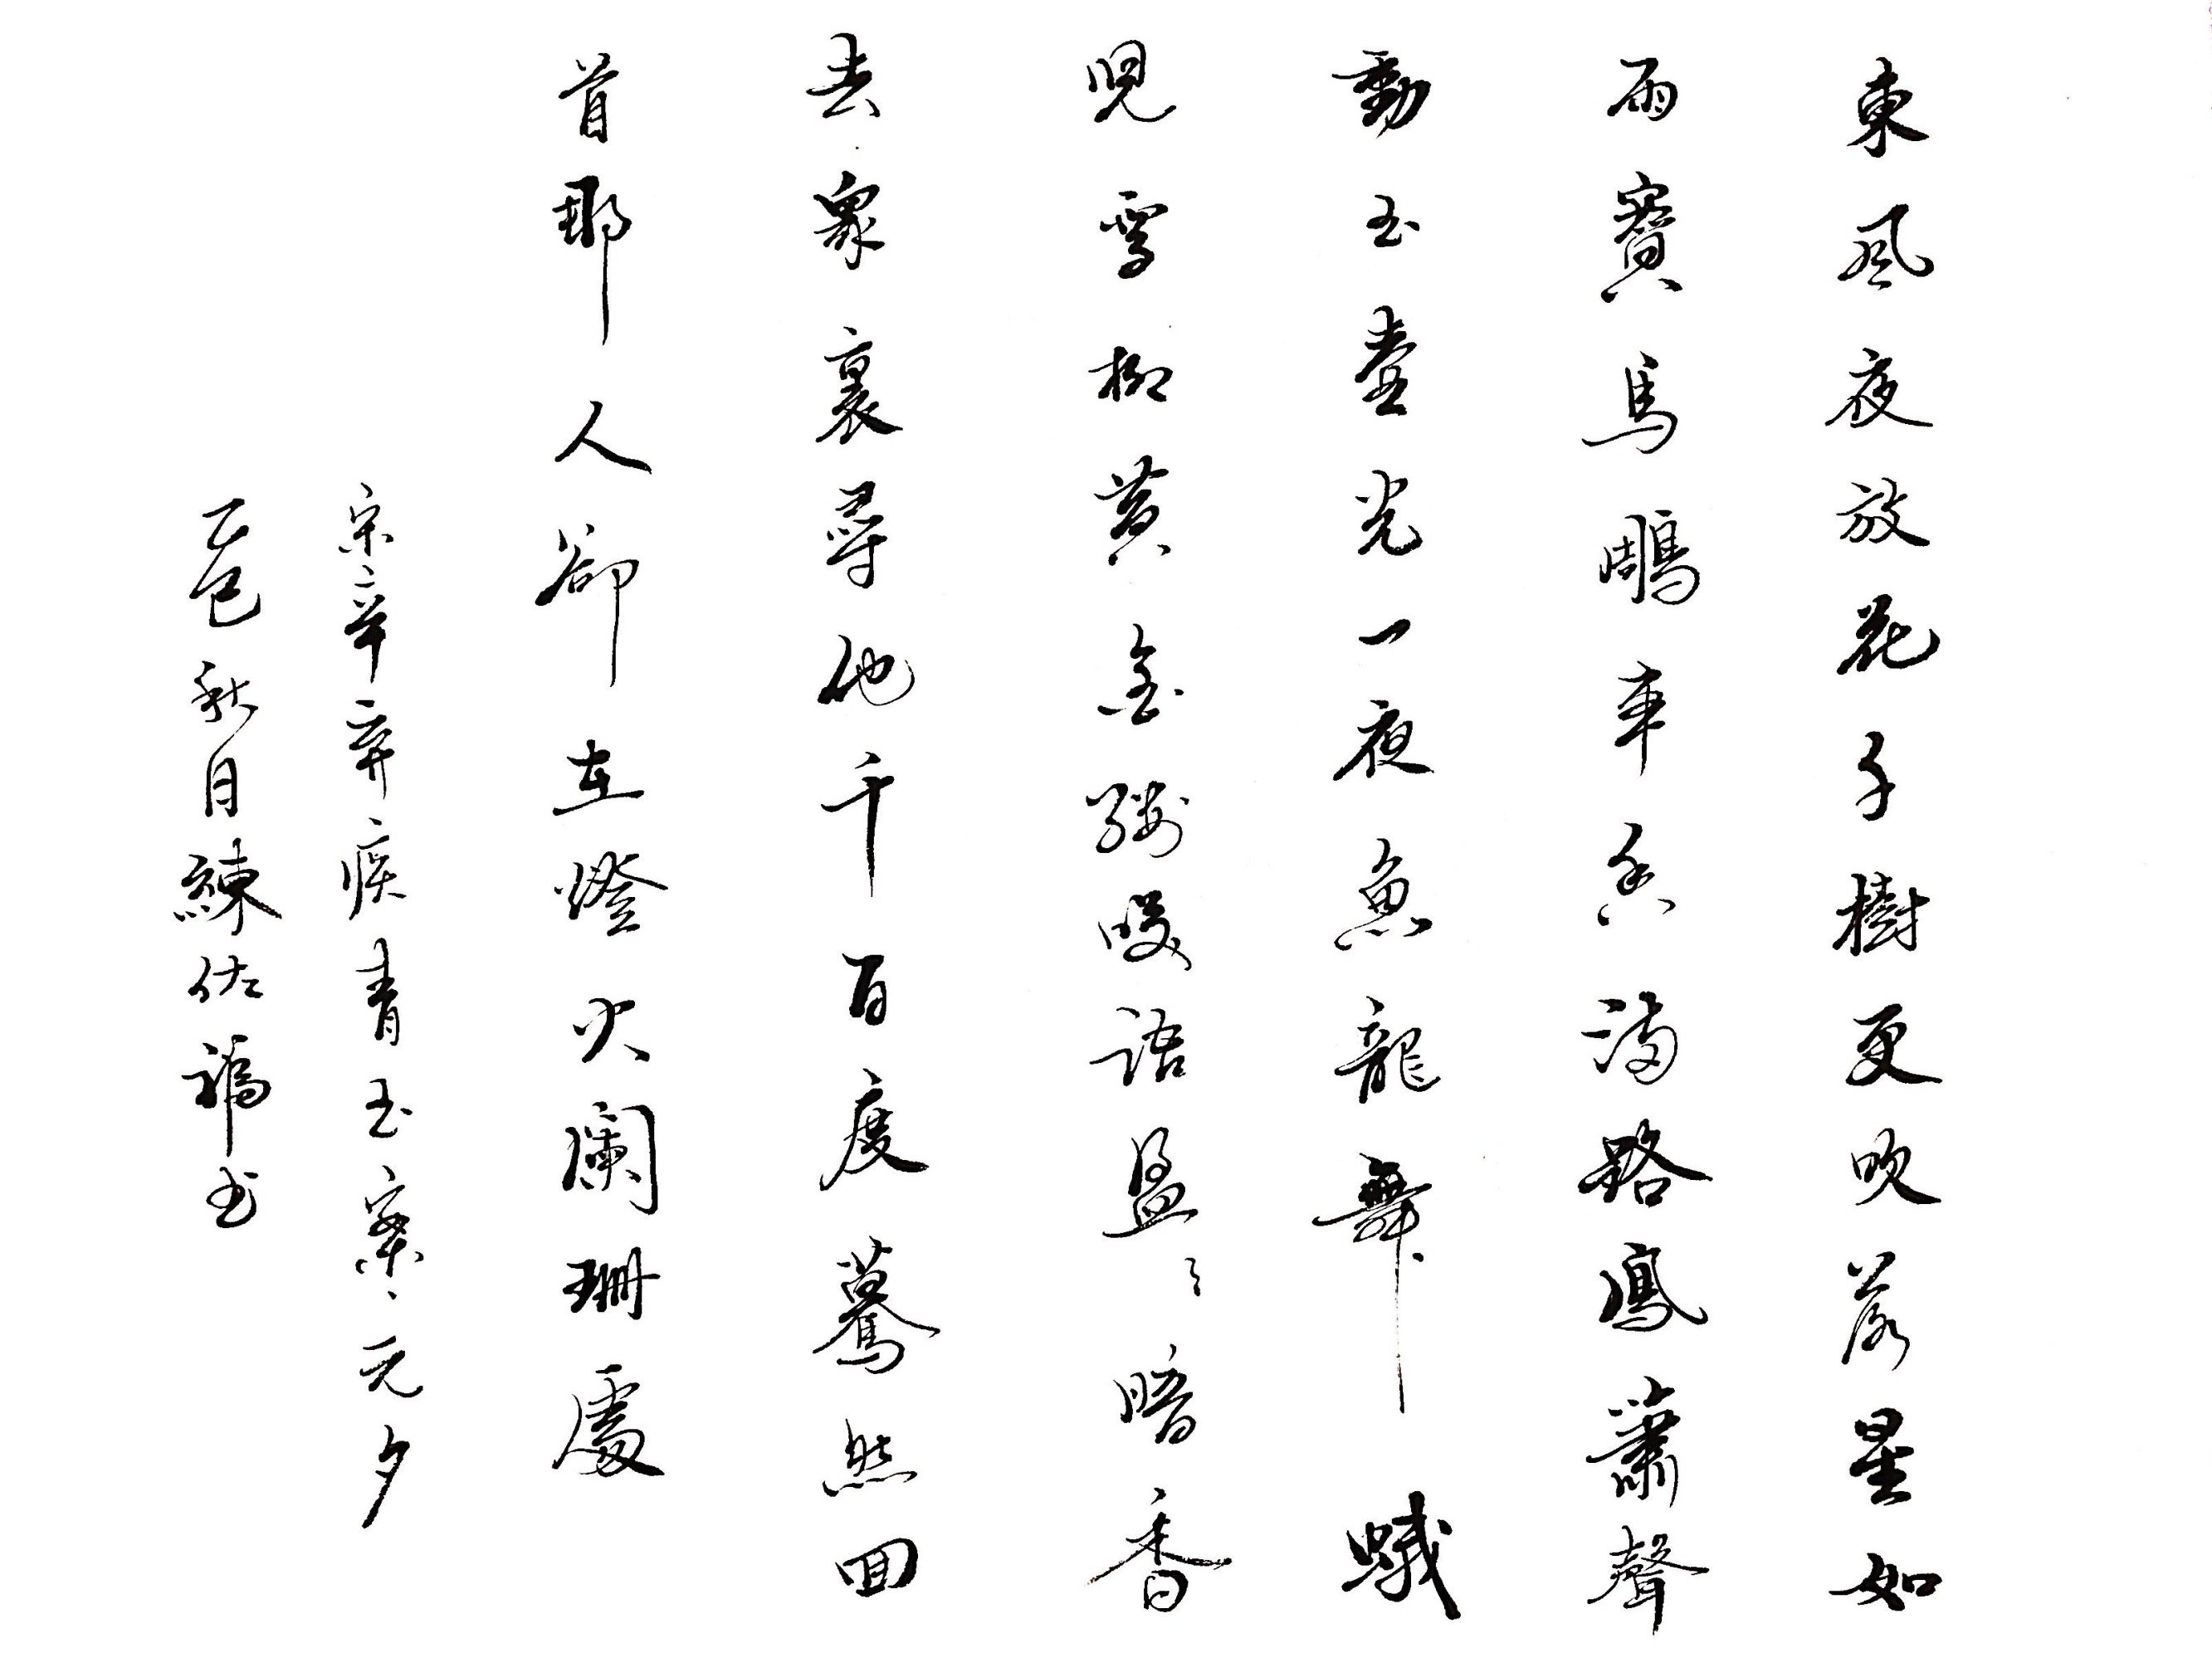 東風夜放花千樹更吹落星如
雨寶馬鵰車香滿路鳳簫聲
動玉壺光一夜魚龍舞蛾
兒雪柳黃金縷咲語盈〻暗香
去衆裏尋他千百度驀然回
首那人卻在燈火闌珊處
宋辛弃疾青玉案、元夕
乙巳秋月練佐书